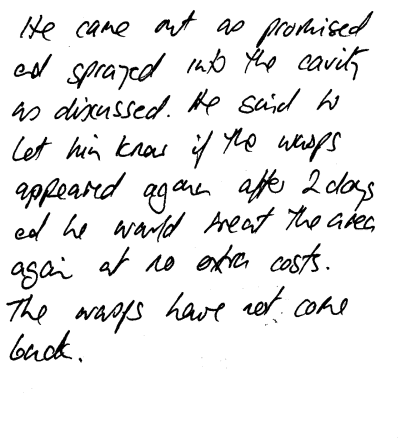 He came out as promised
and sprayed into the cavity
as discussed. He said to
let him know if the wasps
appeared again after 2 days
and he would treat the area
again at no extra costs.
The wasps have not come
back.